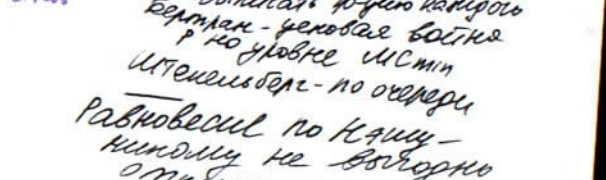 функцию каждого
Бертран - ценовая война
P на уровне MCmin
Штекельберг - по очереди
Равновесие по Нэшу -
никому не выгодно